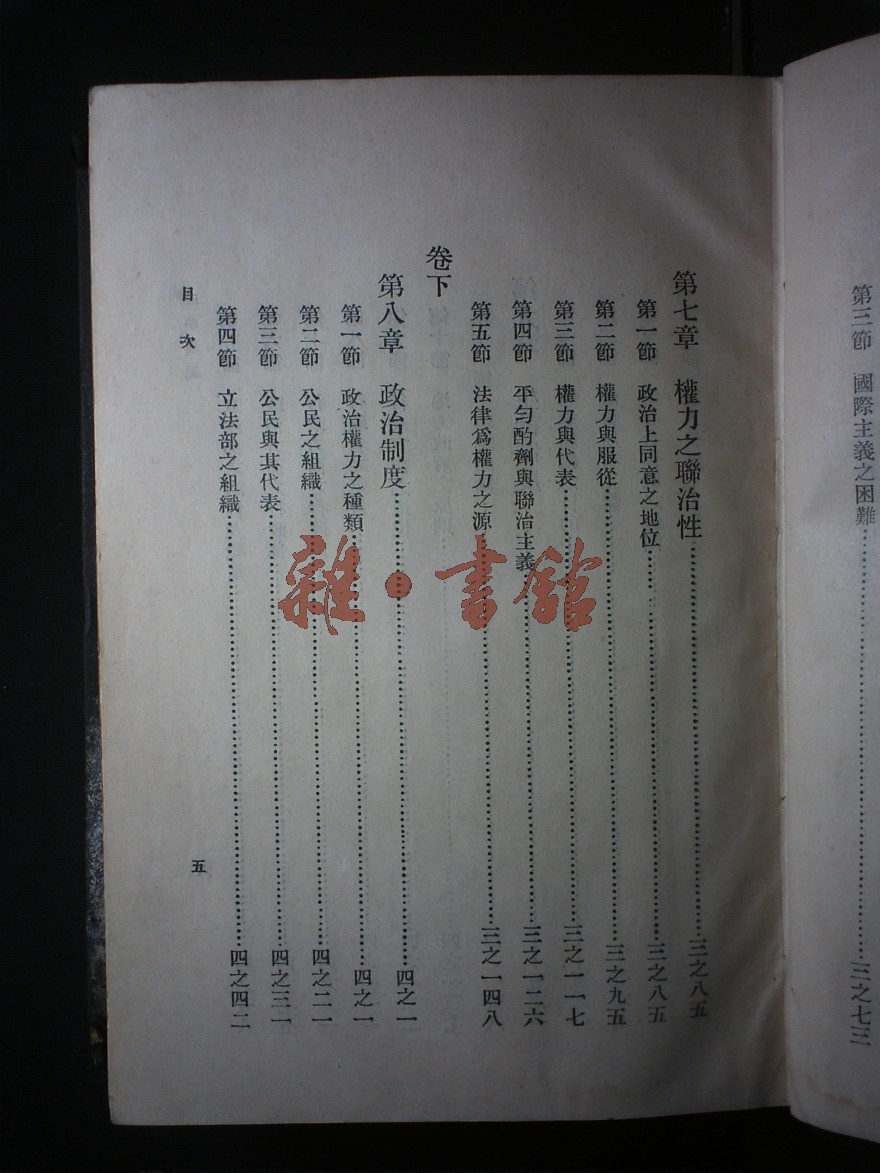 第三節 國際主義之困難……三之七三
第七章 權力之聯治性……三之八五
第一節 政治上同意之地位……三之八五
第二節 權力與服從……三之九五
第三節 權力與代表……三之一一七
第四節 平勻酌劑與聯治主義……三之一二六
第五節 法律爲權力之源……三之一四八
卷下
第八章 政治制度……四之一
第一節 政治權力之種類……四之一
第二節 公民之組織……四之二一
第三節 公民與其代表……四之三一
第四節 立法部之組織……四之四二
目次
五
雜·書館